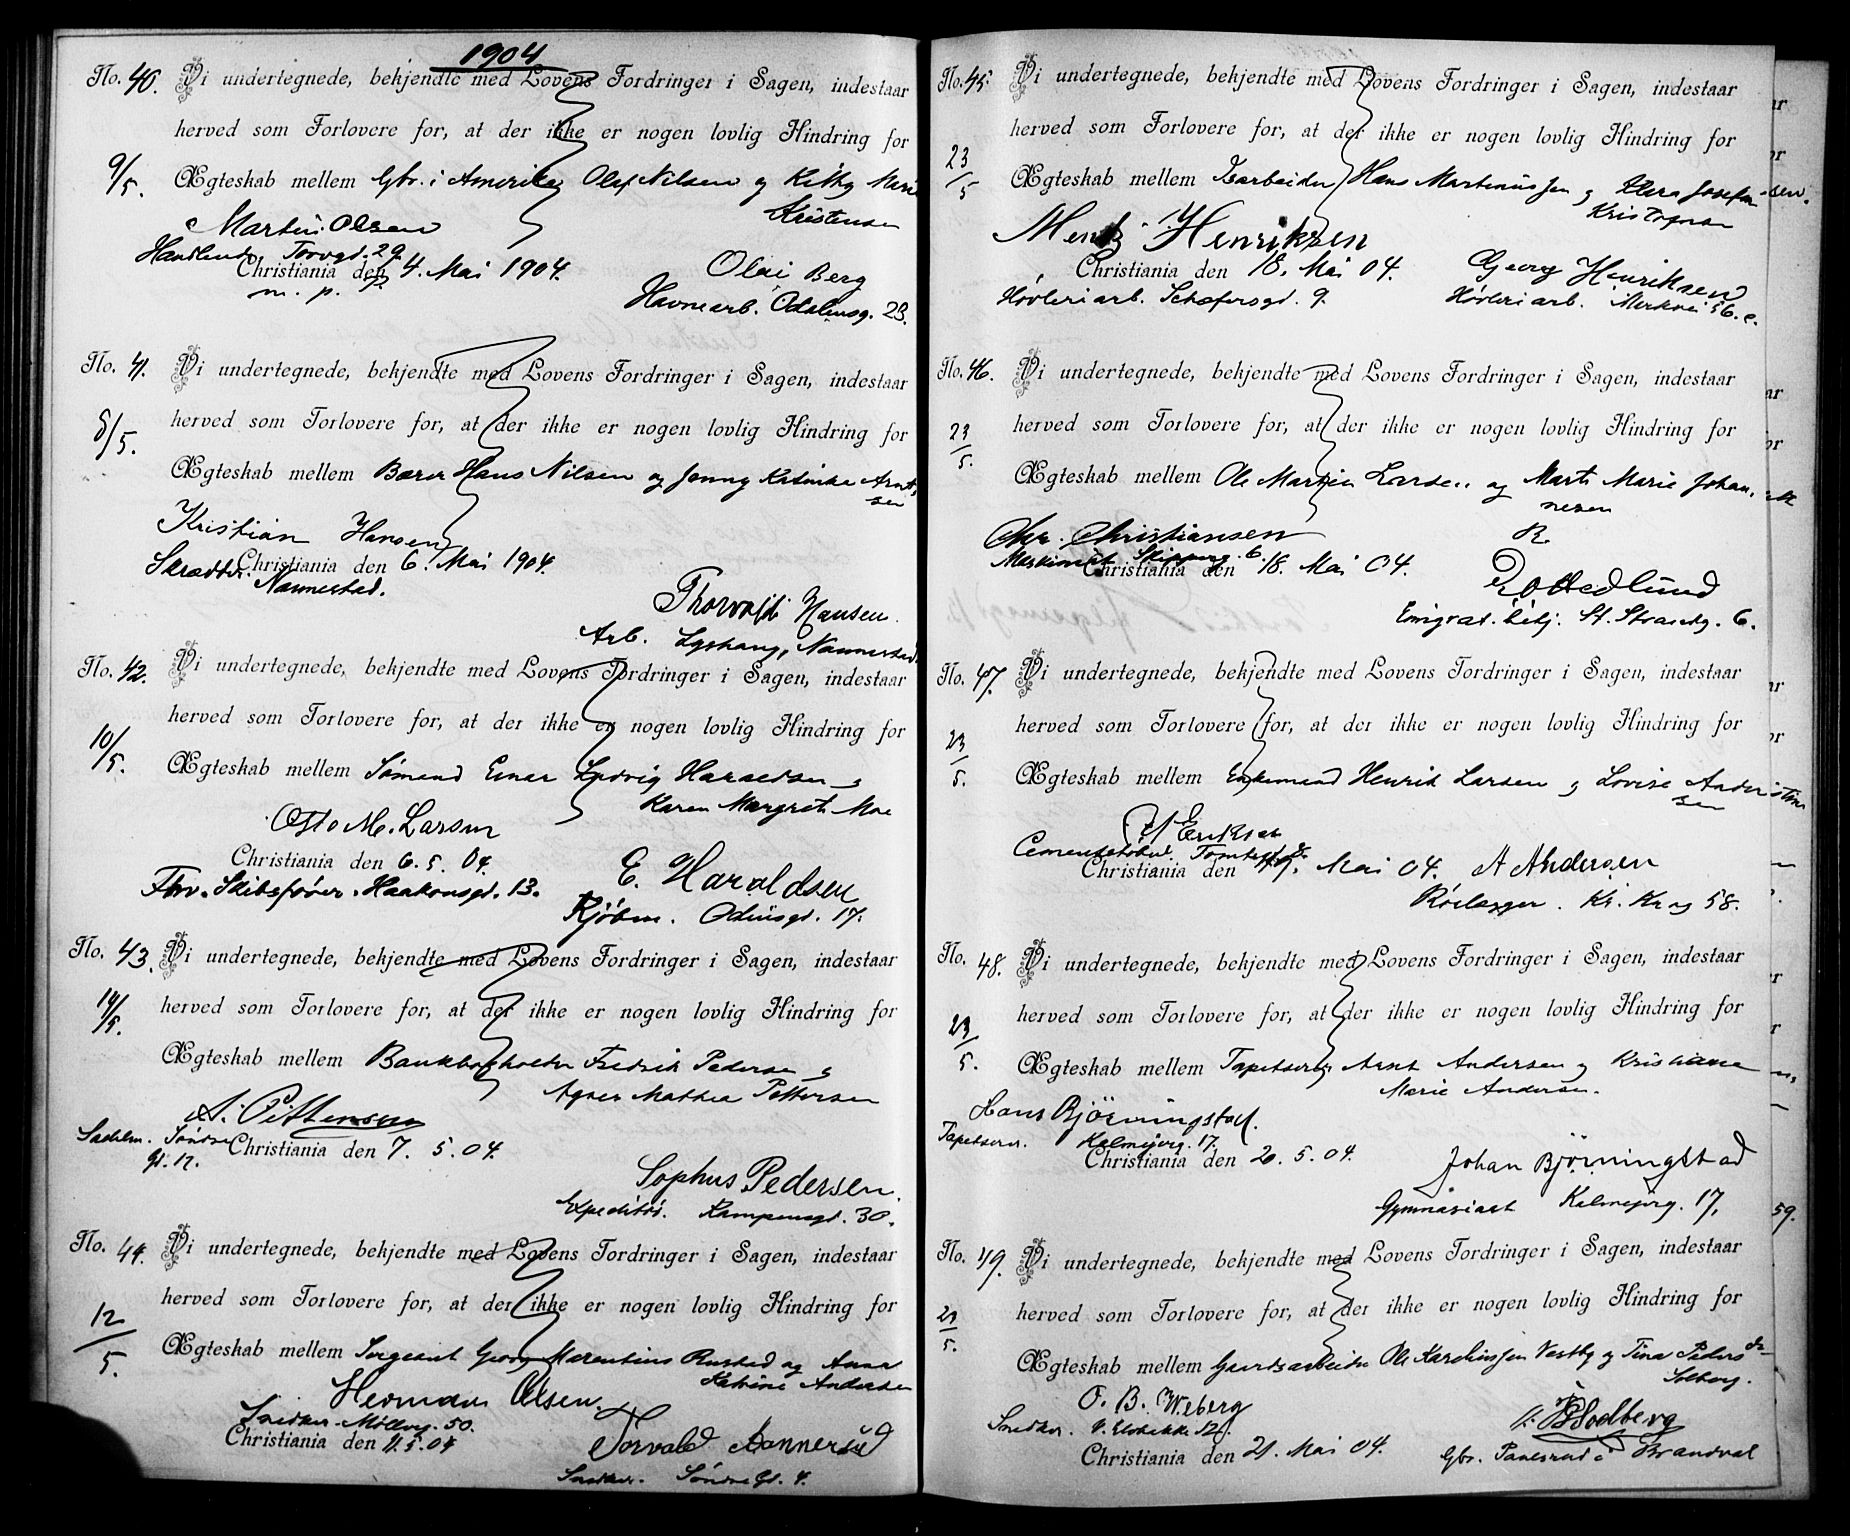 1904
No. 40. Vi undertegnede, bekjendte med Lovens Fordringer i Sagen, indestaar
herved som Forlovere for, at der ikke er nogen lovlig Hindring for
9/5. Ægteskab mellem Gbr. i Amerika Olaf Nilsen og Kitty Marie
Kristensen
Martin Olsen
Handlende Torvgd. 29
Christiania den 4. Mai 1904.
m. p. P.
Olai Berg
Havnearb. Odalensg. 23.
No. 41. Vi undertegnede, bekjendte med Lovens Fordringer i Sagen, indestaar
herved som Forlovere for, at der ikke er nogen lovlig Hindring for
8/5. Ægteskab mellem Bærer Hans Nilsen og Jenny Katinka Arnt-
sen
Kristian Hansen
Skrædder. Nannestad.
Christiania den 6. Mai 1904.
Thorvald Hansen.
Arb. Nannestad.
No. 42. Vi undertegnede, bekjendte med Lovens Fordringer i Sagen, indestaar
herved som Forlovere for, at der ikke er nogen lovlig Hindring for
10/5. Ægteskab mellem Sømand Einar Ludvig Haraldsen og
Karen Margreth Moe
Otto M. Larsen
Christiania den 6. 5. 04.
Fhv. Skibsfører. Haakonsgd. 13.
E. Haraldsen
Kjøbm. Odinsgd. 17.
No. 43. Vi undertegnede, bekjendte med Lovens Fordringer i Sagen, indestaar
herved som Forlovere for, at der ikke er nogen lovlig Hindring for
14/5. Ægteskab mellem Bankbogholder Fredrik Pedersen og
Agnes Mathea Pettersen
A. Pettersen
Sadelm. Søndre
Gd. 12.
Christiania den 7. 5. 04.
Sophus Pedersen.
Expeditør. Kampensgd. 30.
No. 44. Vi undertegnede, bekjendte med Lovens Fordringer i Sagen, indestaar
herved som Forlovere for, at der ikke er nogen lovlig Hindring for
12/5. Ægteskab mellem Sergeant Georg Marentius Rustad og Anna
Katrine Andersen
Herman Olsen.
Snedker. Møllerg. 50.
Christiania den 11. 5. 04
Torvald Aannerud
Snedker. Søndre Gd. 4.
No. 45. Vi undertegnede, bekjendte med Lovens Fordringer i Sagen, indestaar
herved som Forlovere for, at der ikke er nogen lovlig Hindring for
23/5 Ægteskab mellem Isarbeider Hans Martiniussen og Klara Josefine
Kristofersen
Mentz Henriksen
Christiania den 18. Mai 04.
Høvleriarb. Schæfersgd. 9.
Georg Henriksen
Høvleriarb. Merkvei 56. c.
No. 46. Vi undertegnede, bekjendte med Lovens Fordringer i Sagen, indestaar
herved som Forlovere for, at der ikke er nogen lovlig Hindring for
23/5. Ægteskab mellem Ole Martin Larsen og Marth Marie Johan-
nesen
Chr. Christiansen
Maskinist Skipperg. 6.
Christiania den 18. Mai 04.
R
Hedlund
Emigrat. betj. St. Strandg. 6.
No. 47. Vi undertegnede, bekjendte med Lovens Fordringer i Sagen, indestaar
herved som Forlovere for, at der ikke er nogen lovlig Hindring for
23/5. Ægteskab mellem Enkemand Henrik Larsen og Lovise Ander-
sen
Eriksen
Christiania den 19. Mai 04.
A Andersen
Rørlægger. Kr. Krog 58.
No. 48. Vi undertegnede, bekjendte med Lovens Fordringer i Sagen, indestaar
herved som Forlovere for, at der ikke er nogen lovlig Hindring for
23/5. Ægteskab mellem Tapetserer Arnt Andersen og Kristiane
Marie Andersen.
Hans Bjørningstad.
Tapetserer. Kalmejerg. 17.
Christiania den 20. 5. 04.
Johan Bjørningstad
Gymnasiast Kalmejerg. 17.
No. 49. Vi undertegnede, bekjendte med Lovens Fordringer i Sagen, indestaar
herved som Forlovere for, at der ikke er nogen lovlig Hindring for
23/5. Ægteskab mellem Gaardsarbeider Ole Kareliussen Vestby og Tina Pedersdr
Solberg.
O. B. Weberg
Snedker.
Christiania den 21. Mai 04.
Solberg
Gbr. i Brandval